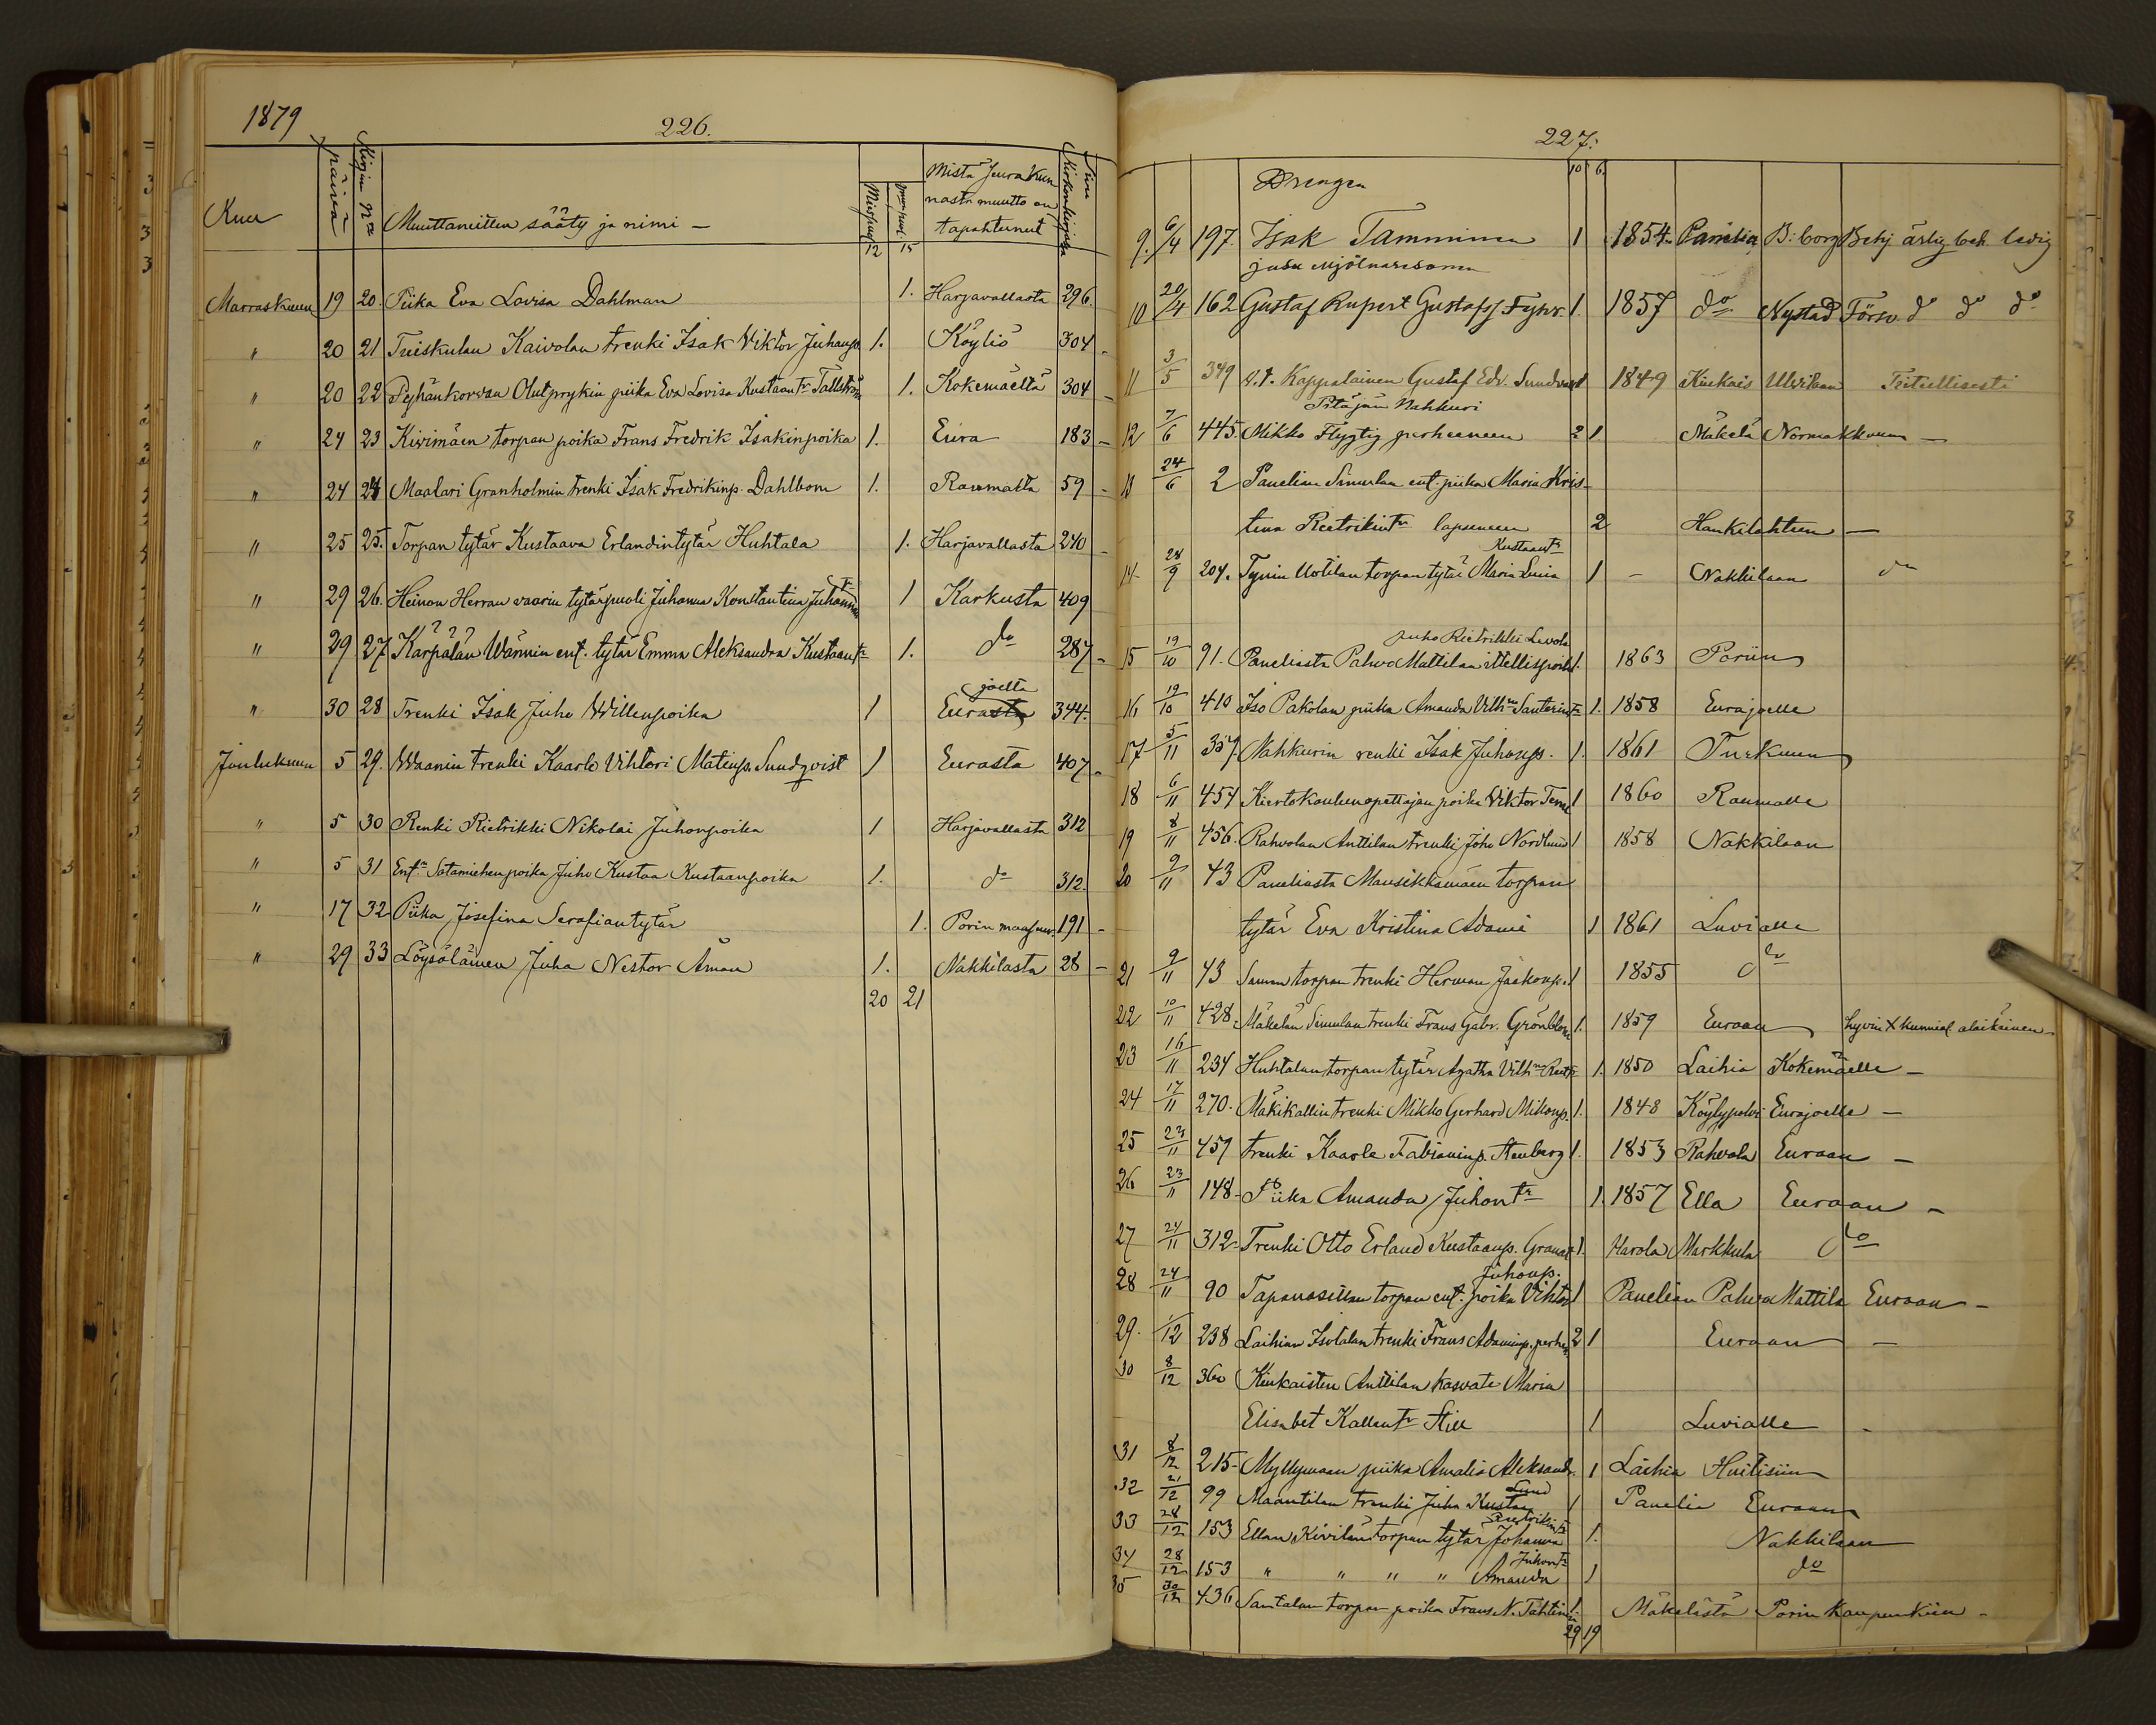 1879
226.
Kuu päivä Kirjan N:o Muuttaneitten sääty ja nimi – Miesp. Vaimop. Mistä seurakunnasta muutto on tapahtunut Sivu Kirkonkirjassa
12 15
Marraskuun 19 20. Piika Eva Lovisa Dahlman 1. Harjavallasta 296.
" 20 21 Tuiskulan Kaivolan trenki Isak Viktor Juhanp. 1. Köyliö 304 –
" 20 22 Pyhänkorvan Olutprykin piika Eva Lovisa Kustaantr Tallström 1. Kokemäeltä 304 –
" 24 23 Kivimäen torpan poika Frans Fredrik Isakinpoika 1. Eura 183 –
" 24 24 Maalari Granholmin trenki Isak Fredrikinp. Dahlbom 1. Raumalta 59 –
" 25 25. Torpan tytär Kustaava Erlandintytär Huhtala 1. Harjavallasta 240 –
" 29 26. Heinon Herran vaarin tytärpuoli Juhanna Konstantina Juhantr 1 Karkusta 409
" 29 27 Karpalan Wännin ent. tytär Emma Aleksandra Kustaantr 1. do 287 –
joelta
" 30 28 Trenki Isak Juho Willenpoika 1 Eurasta 344.
Joulukuun 5 29. Waanin trenki Kaarlo Vihtori Matinp. Sundqvist 1 Eurasta 407 –
" 5 30 Renki Rietrikki Nikolai Juhonpoika 1 Harjavallasta 312
" 5 31 Entn Satamiehen poika Juho Kustaa Kustaanpoika 1. do 312.
" 17 32 Piika Josefina Serafiantytär 1. Porin maaseur. 191 –
" 29 33 Löysäläinen Juha Nestor Åman 1. Nakkilasta 28 –
20 21
227.
10 6.
Drengen
9. 6/4 197. Isak Tamminen 1 1854. Panelia B:borg Betj ärlig och ledig
10 20/4 162 Gustaf Rupert Gustafss Fyhr 1. 1857 do Nystad Försv do do do
11 3/5 349 v.t. Kappalainen Gustaf Edv. Sundvall 1 1849 Kiukais Ulvilaan
Pitäjän Nahkuri
12 7/6 445. Mikko Flygtig perheeneen 2 1 Mäkelä Normarkkuun –
13 24/6 2 Panelian Simulan ent. piika Maria Kris-
tina Rietrikintr lapseneen 2 Hankilahteen –
Kustaantr
14 28/9 204. Tynin Uotilan torpan tytär Maria Lusia 1 – Nakkilaan do
Juho Rietrikki Levola
15 19/10 91. Paneliasta Pahvo Mattilan ittellispoika 1. 1863 Poriin
16 19/10 410 Iso Pakolan piika Amanda Vilhna Santerintr 1. 1858 Eurajoelle
17 5/11 357. Nahkurin renki Isak Juhonp. 1. 1861 Turkuun
18 6/11 454 Kiertokoulunopettajan poika Viktor 1 1860 Raumalle
19 8/11 456. Rahvolan Anttilan trenki Joho Nordlund 1 1858 Nakkilaan
20 9/11 43 Paneliasta Mansikkamäen torpan
tytär Eva Kristina Adami 1 1861 Luvialle
21 9/11 43 Saman torpan trenki Herman Jaakonp. 1 1855 do
22 10/11 428. Mäkelän Simulan trenki Frans Gabr. Grönblom 1. 1859 Euraan hyvin X kunnial. alaikäinen
23 16/11 234 Huhtalan torpan tytär Agatha Vilhna 1. 1850 Laihia Kokemäelle –
24 17/11 270. Mäkikallin trenki Mikko Gerhard Mikonp. 1. 1848 Köylypolvi Eurajoelle –
25 23/11 457 trenki Kaarle Fabianinp. Stenberg 1. 1853 Rahvola Euraan –
26 23/11 148 – Piika Amanda Juhontr 1. 1857 Ella Euraan –
27 24/11 312 – Trenki Otto Erland Kustaanp. Granat 1. Harola Markkula do
Juhonp.
28 24/11 90 Tapanasillan torpan ent. poika Vihtor 1 Panelian Pahvo Mattila Euraan –
29. 1/12 238 Laihian Isotalan trenki Frans Adaminp. perhe 2 1 Euraan –
30 8/12 360 Kiukaisten Anttilan kasvate Maria
Elisabet Kallentr Still 1 Luvialle –
31 8/12 215 – Myllymaan piika Amalia Aleksand. 1 Laihia Huitisiin
Lund
32 21/12 99 Maantilan trenki Juha Kustaa 1 Panelia Euraan
33 28/12 153 Ellan Kivilän torpan tytär Johanna 1. Nakkilaan
Juhontr
34 28/12 153 " " " " Amanda 1 do
35 30/12 436 Santalan torpan poika Frans N. Tähtinen 1. Mäkelästä Porin kaupunkiin –
29 19